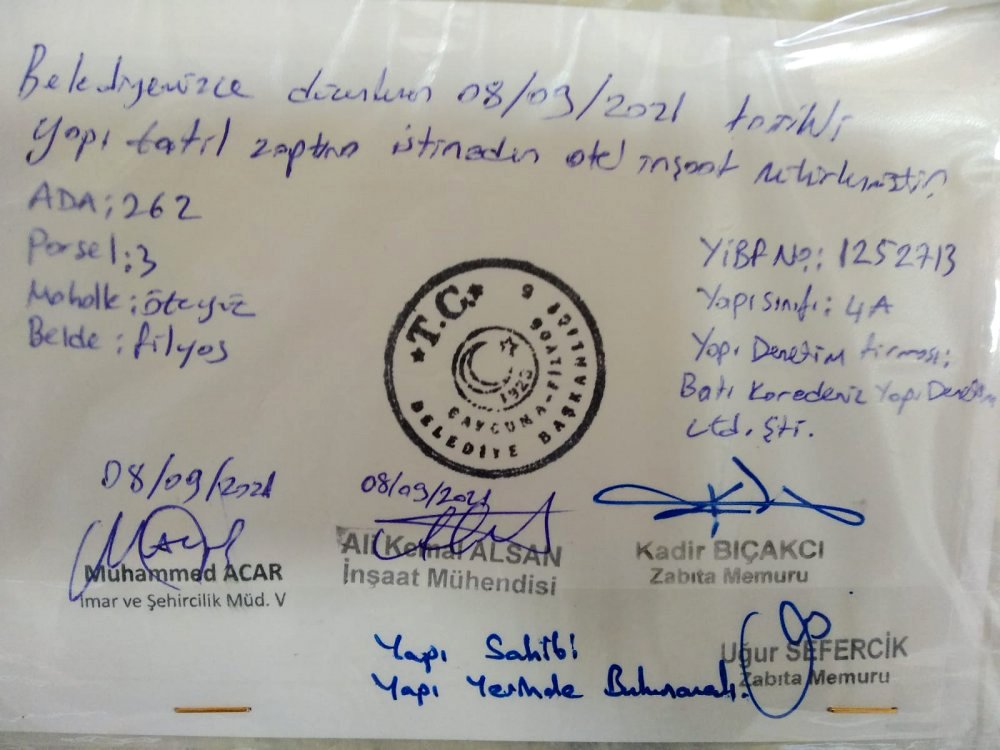 Belediyenizce düzenlenen 08/09/2021 tarihli
Yapı tatil zaptına istinaden otel inşaat mühürlenmiştir.
ADA: 262
Parsel: 3
Mahalle: öteyüz
Belde: filyos
YİBF No: 1252713
Yapı sınıfı: 4A
Yapı Denetim firması:
Batı Karadeniz Yapı Denetim
Ltd. Şti.
T.C.
ÇAYCUMA-FİLYOS
BELEDİYE BAŞKANLIĞI
1923
6
08/09/2021
08/09/2021
Muhammed ACAR
İmar ve Şehircilik Müd. V
Ali Kemal ALSAN
İnşaat Mühendisi
Kadir BIÇAKCI
Zabıta Memuru
Yapı Sahibi
Yapı Yerinde Bulunamadı.
Uğur SEFERCİK
Zabıta Memuru